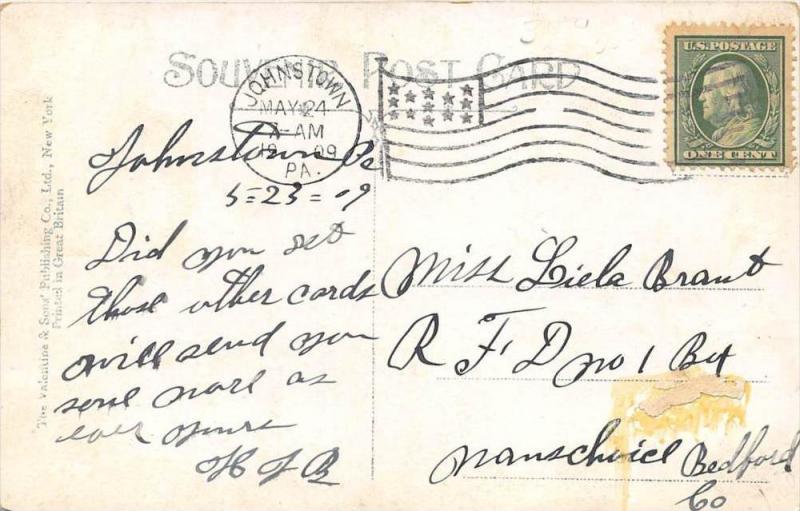 SOUVENIR POST CARD
U.S. POSTAGE
ONE CENT
JOHNSTOWN
MAY 24
7-AM
1909
PA.
The Valentine & Sons' Publishing Co., Ltd., New York
Printed in Great Britain
Johnstown Pa
5=23=09
Did you get
those other cards
will send you
some more as
ever yours
H J B
Miss Liela Brant
R F D no 1 Bx
Manschoice Bedford
Co